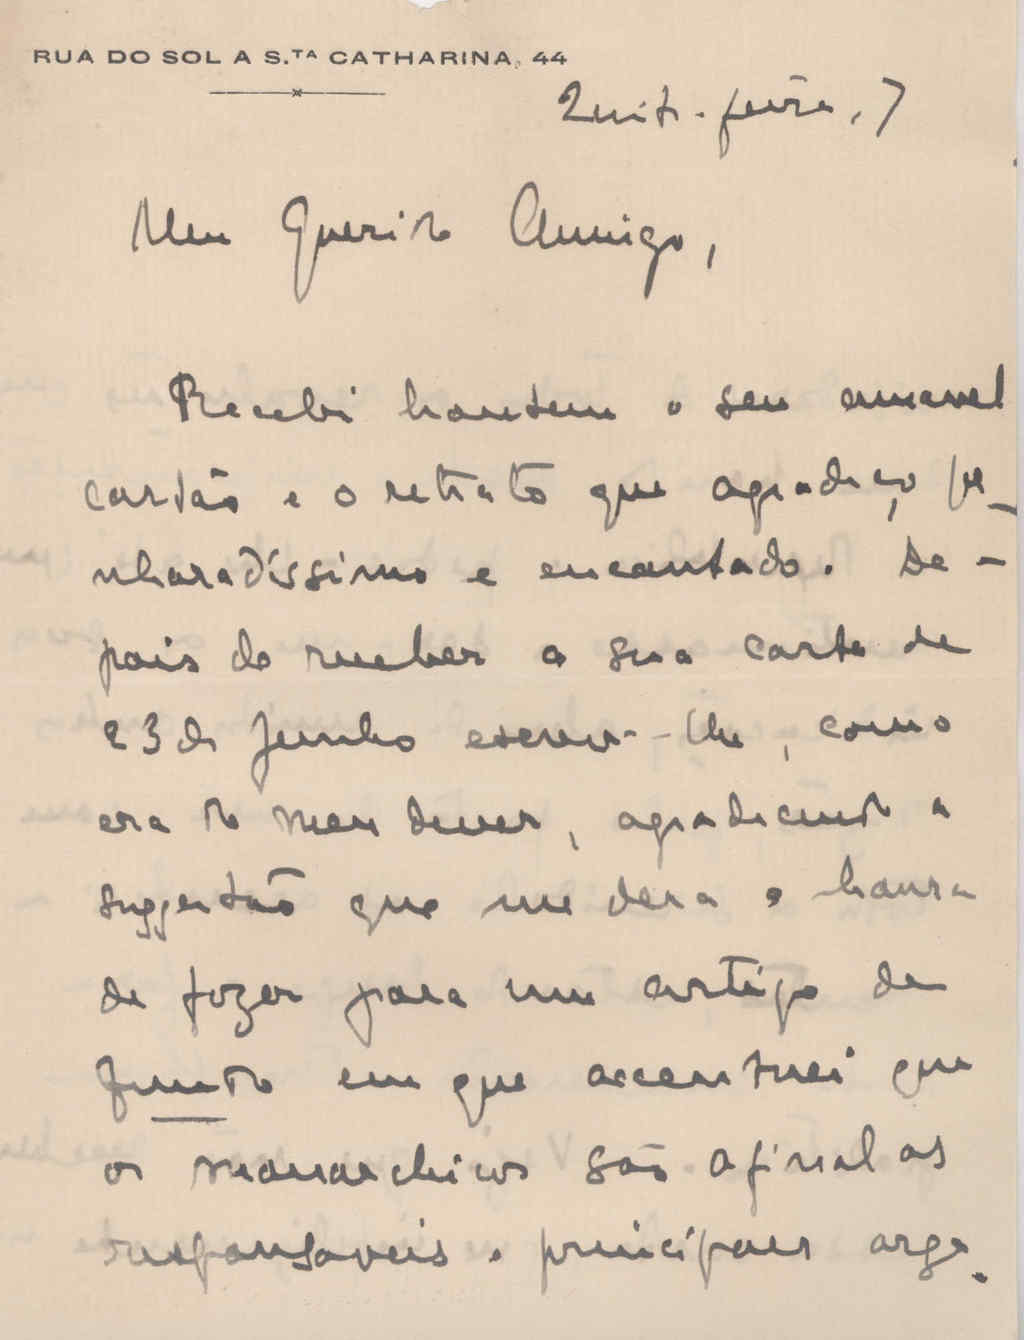 RUA DO SOL A S.TA CATHARINA, 44
Quint.-feira, 7
Meu Querido Amigo,
Recebi hontem o seu amavel
cartão e o retrato que agradeço pe-
nhoradissimo e encantado. De-
pois de receber a sua carta de
23 de Junho escrevi-lhe, como
era do meu dever, agradecendo a
suggestão que me dera e honra
de fazer para um artigo de
em que accentuei que
os monarchicos são afinal os
responsaveis e principaes